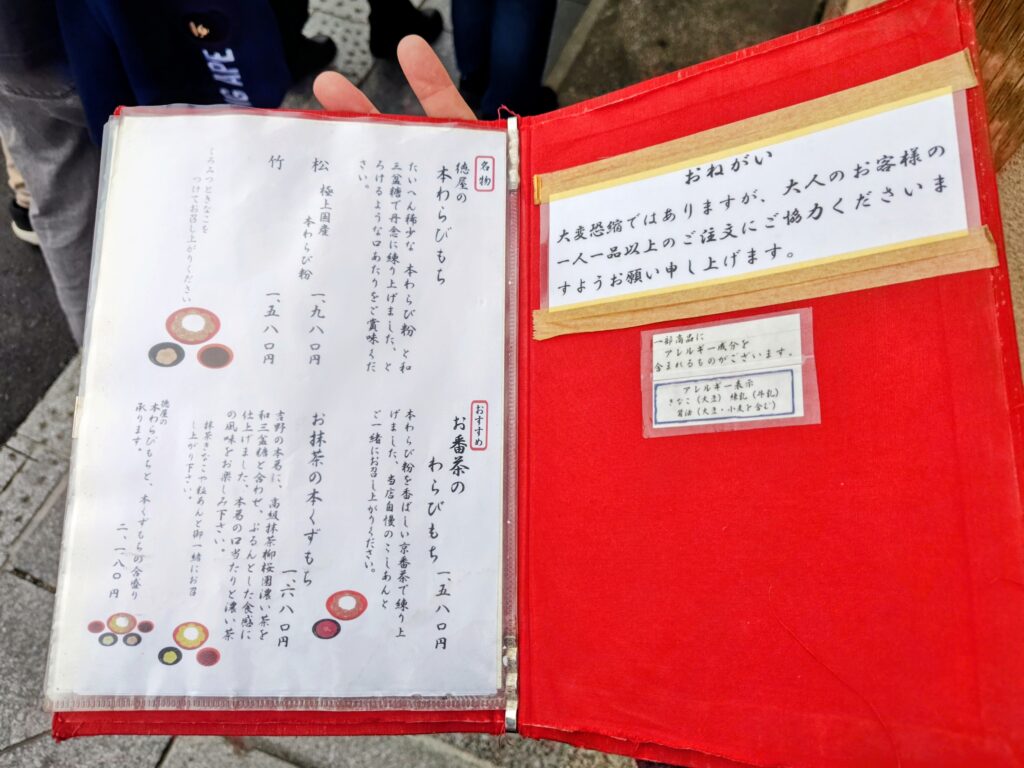 名物
徳屋の
本わらびもち
たいへん稀少な 本わらび粉 と和
三盆糖で丹念に練り上げました、と
ろけるような口あたりをご賞味くだ
さい。
松 極上国産
本わらび粉
一、九八〇円
竹
一、五八〇円
くろみつときなこを
つけてお召し上がりください
おすすめ
お番茶の
わらびもち
一、五八〇円
本わらび粉を香ばしい京番茶で練り上
げました、当店自慢のこしあんと
ご一緒にお召し上がりください。
お抹茶の本くずもち
一、六八〇円
吉野の本葛に、高級抹茶柳桜園濃い茶を
和三盆糖と合わせ、ぷるんとした食感に
仕上げました、本葛の口当たりと濃い茶
の風味をお楽しみ下さい。
抹茶きなこや粒あんと御一緒にお召
し上がり下さい。
徳屋の
本わらびもちと、本くずもちの合盛り
承ります。
二、一八〇円
おねがい
大変恐縮ではありますが、大人のお客様の
一人一品以上のご注文にご協力くださいま
すようお願い申し上げます。
一部商品に
アレルギー成分を
含まれるものがございます。
アレルギー表示
きなこ（大豆） 練乳（牛乳）
醤油（大豆・小麦を含む）
NG APE